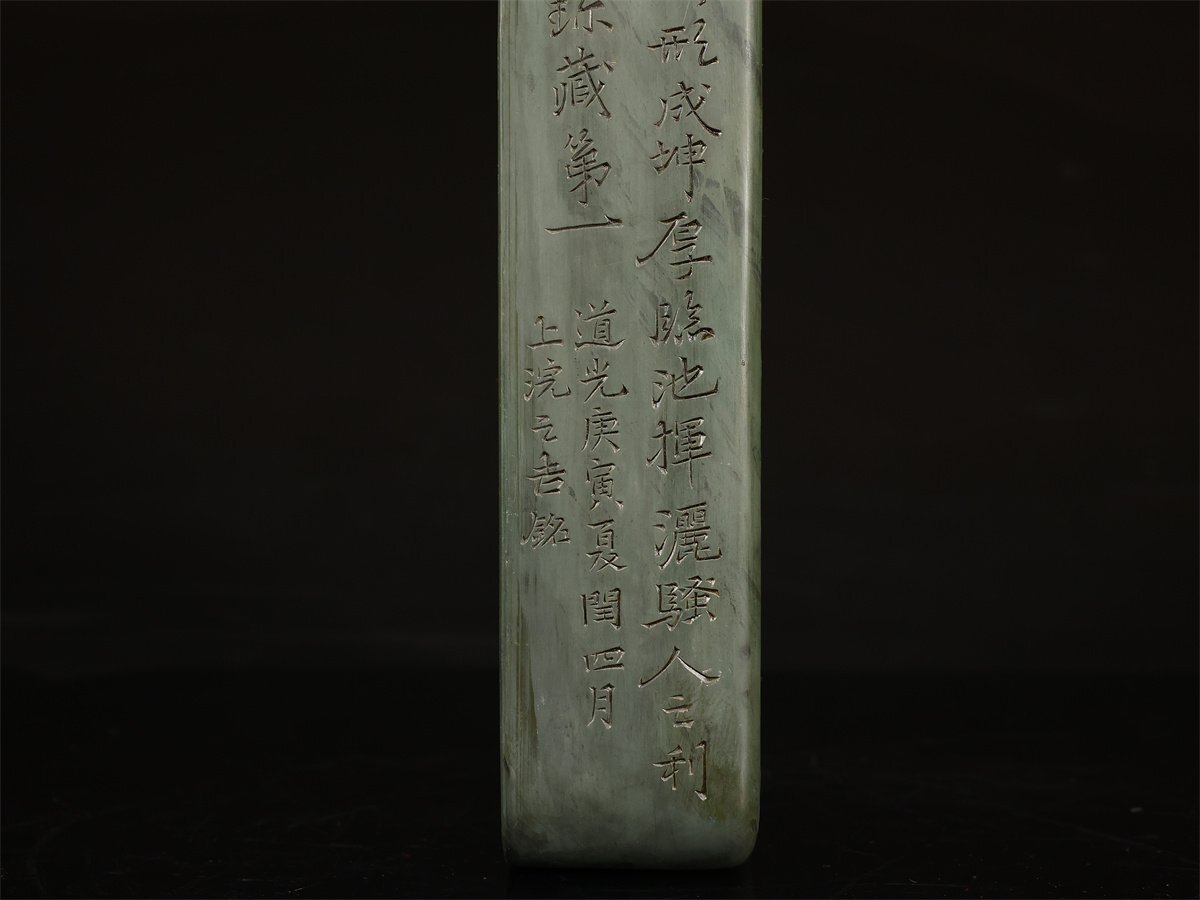 形成坤厚臨池揮灑騷人之利
珎藏第一
道光庚寅夏閏四月
上浣之吉銘